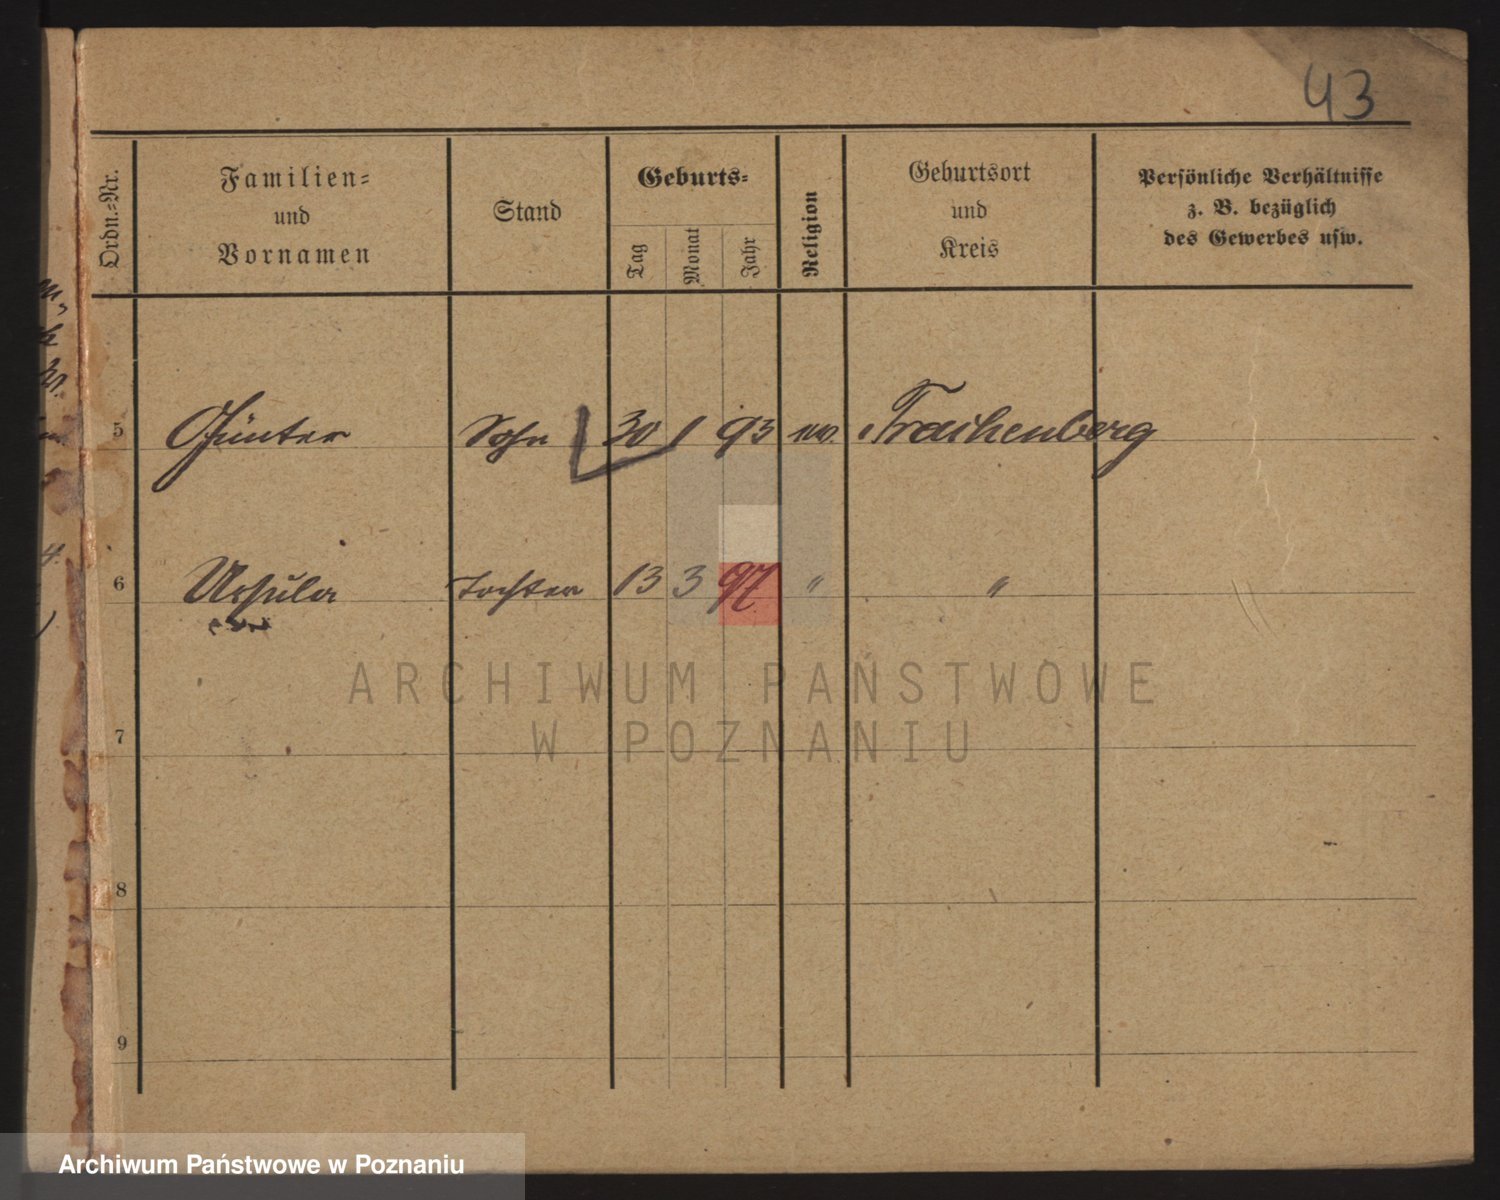 43
Ordn.=Nr.
Familien=
und
Vornamen
Stand
Geburts=
Tag
Monat
Jahr
Religion
Geburtsort
und
Kreis
Persönliche Verhältnisse
z. B. bezüglich
des Gewerbes usw.
5 Günter Sohn 30 1 93 ev. Trachenberg
6 Ursula Tochter 13 3 97 " "
7
8
9
ARCHIWUM PAŃSTWOWE
W POZNANIU
Archiwum Państwowe w Poznaniu